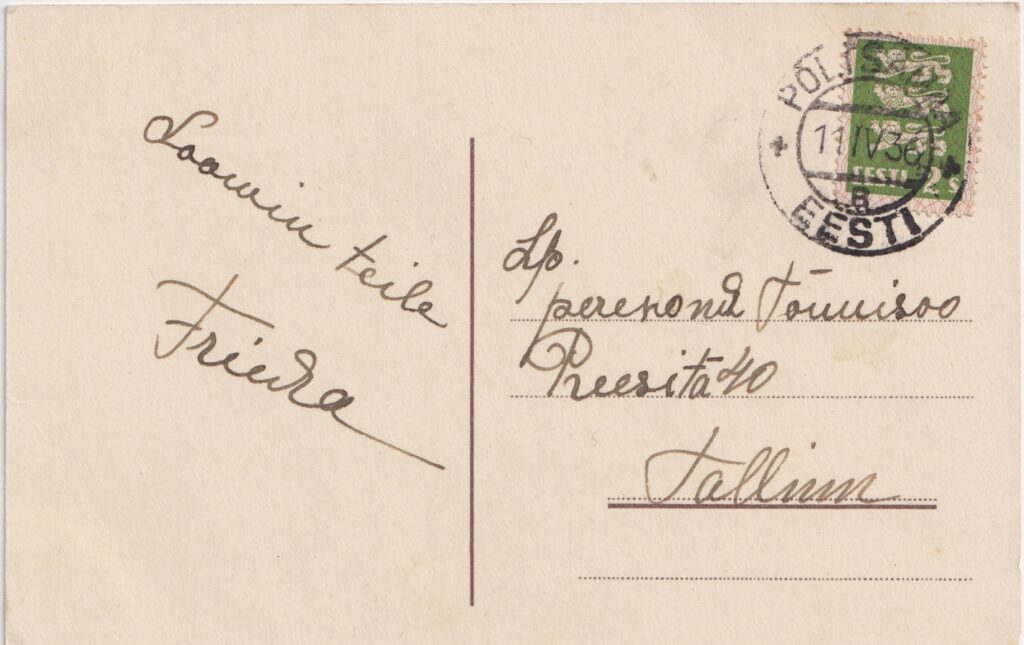 Soowin teile
Frieda
PÕLTSAMAA
11 IV 36
B
EESTI
EESTI 2 S
Lp.
perekond Tõnnisoo
Preesitä 40
Tallinn